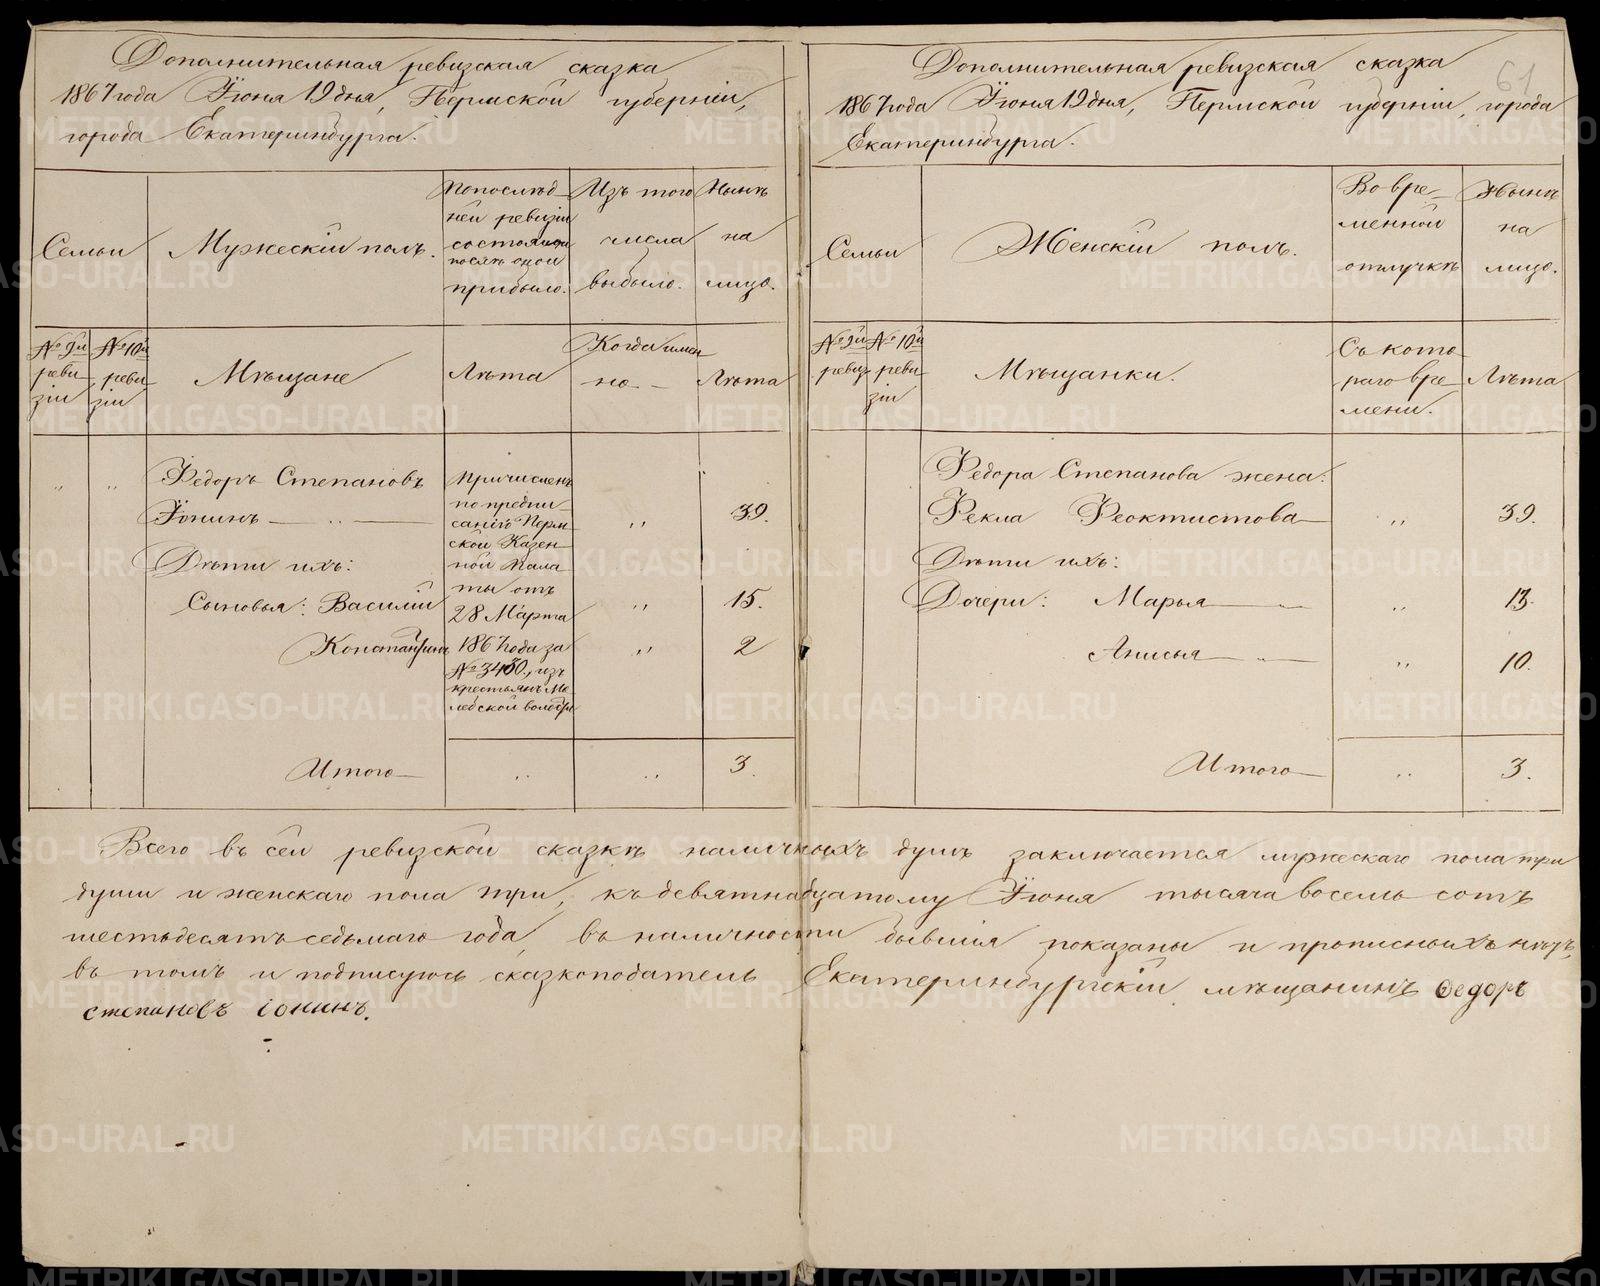 Дополнительная ревизская сказка
1867 года Іюня 19 дня, Пермской губерніи,
города Екатеринбурга.
Семьи
Мужескій полъ.
По послѣд-
ней ревизіи
состояло и
послѣ оной
прибыло.
Изъ того
числа
выбыло.
Нынѣ
на
лицо.
№ 9й
реви-
зіи
№ 10й
реви-
зіи
Мѣщане
Лѣта
Когда имен
но —
Лѣта
„ „ Ѳедоръ Степановъ
Іонинъ — „ — „ 39.
Дѣти ихъ:
Сыновья: Василій „ 15.
Константинъ „ 2
Причисленъ
по предпи-
санію Перм-
ской Казен-
ной Пала
ты отъ
28 Марта
1867 года за
№ 3430, изъ
крестьянъ
ской волости
Итого — „ „ 3.
61
Дополнительная ревизская сказка
1867 года Іюня 19 дня, Пермской губерніи, города
Екатеринбурга.
Семьи
Женскій полъ.
Во вре-
менной
отлучкѣ
Нынѣ
на
лицо.
№ 9й
ревиз
№ 10й
реви-
зіи
Мѣщанки.
Съ кото-
раго вре-
мени.
Лѣта
Ѳедора Степанова жена:
Ѳекла Ѳеоктистова — „ 39.
Дѣти ихъ:
Дочери: Марья — „ 13.
Анисья — „ — „ 10.
Итого — „ 3.
Всего въ сей ревизской сказкѣ наличныхъ душъ заключается мужескаго пола три
души и женскаго пола три, къ девятнадцатому Іюня тысяча восемь сотъ
шестьдесятъ седьмаго года, въ наличности бывшія показаны и прописныхъ нѣтъ,
въ томъ и подписуюсь сказкоподатель Екатеринбургскій мѣщанинъ Ѳедоръ
степановъ іонинъ.
METRIKI.GASO-URAL.RU